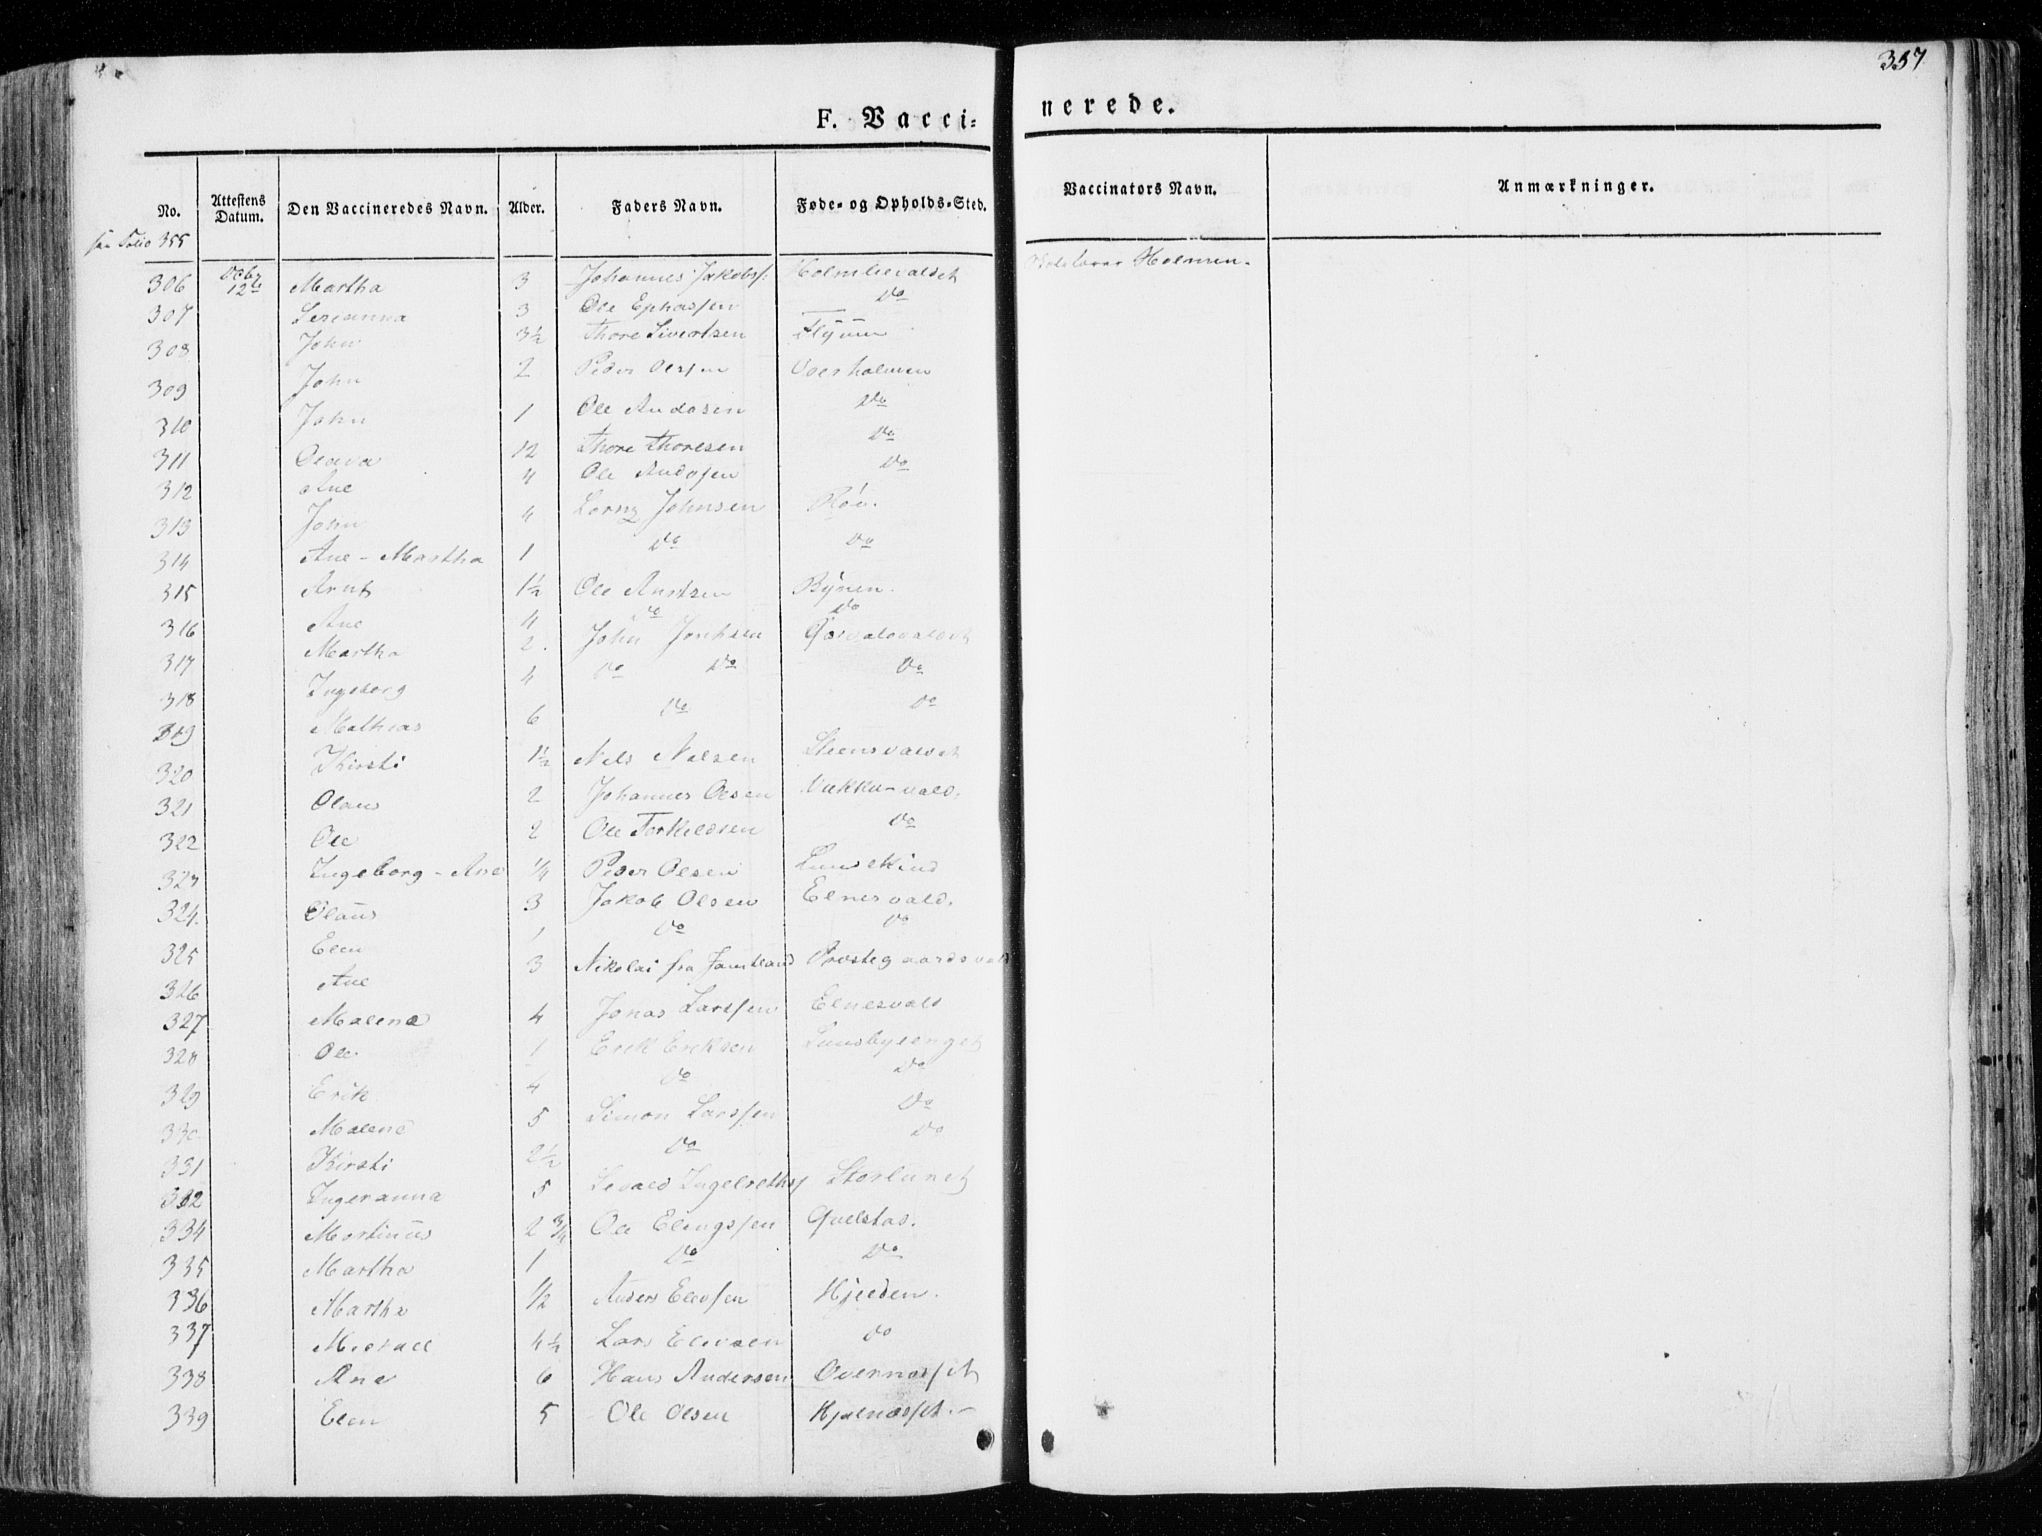 357
F. Vacci-
nerede.
No. Attestens Datum. Den Vaccineredes Navn. Alder. Faders Navn. Føde- og Opholds-Sted. Vaccinators Navn. Anmærkninger.
Folio 355
306 Octbr 12te Martha 3 Johannes Jakobs: Holmlievaldet Holmen.
307 Serianna 3 Ole Ephassen Do
308 John 3½ Thore Sivertsen
309 John 2 Peder Olsen Overholmen
310 John 1 Ole Andosen Do
311 Olava 12 Thore Thoresen Do
312 Ane 4 Ole Andosen Do
313 John 4 Lornz Johnsen Röe.
314 Ane-Martha 1 Do Do
315 Arnt 1½ Ole Arntzen Bÿnen.
316 Ane 4 Do Do
317 Martha 2. John
318 Ingeborg 4 Do Do Do
319 Mathias 6 Do Do
320 Kirsti 1½ Nils Nilsen Steensvaldet
321 Olaus 2 Johannes Olsen Vukku-vald.
322 Ole 2 Ole Torkildsen Do
323 Ingeborg-Ane ¼ Peder Olsen Lundskind
324. Olaus 3 Jakob Olsen Elnesvald.
325 Elen 1 Do Do
326 Ane 3 Nikolai fra Jamtland Prestegaardsvald
327 Malena 4 Jonas Larssen Elnesvald
328 Ole 1 Erik Eriksen
329 Erik 4 Do Do
330 Malene 5 Simon Larssen Do
331 Kirsti 2½ Do Do
332 Ingeranna 5 Sivald Ingelrethsf Storlunet
334 Martinus 2¾ Ole Elingssen Quelstad.
335 Martha 1 Do Do
336 Martha ½ Anders Elevsen
337 4½ Lars Elevsen do
338 Ane 6 Hans Andersen Overnesset
339 Elen 5 Ole Olsen Kjælnesset.